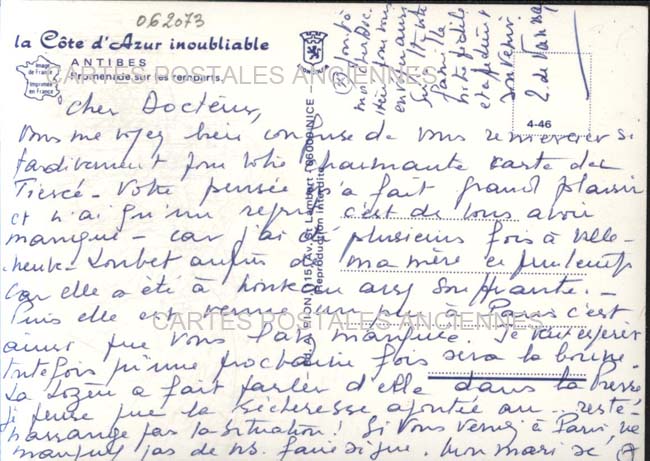 062073
la Côte d'Azur inoubliable
ANTIBES
Promenade sur les remparts.
Image de France
Imprimée en France
CARTES POSTALES ANCIENNES
4-46
Cher Docteur,
Vous me voyez bien confuse de vous remercier si
tardivement pour votre charmante carte de
Tiercé - Votre pensée m'a fait grand plaisir
et n'ai qu'un regret c'est de vous avoir
manqué - car j'ai été plusieurs fois à Ville-
neuve-Loubet auprès de ma mère ce printemps
car elle a été à assez souffrante -
Puis elle est venue un peu à Paris c'est
ainsi que vous l'avez manquée. Je veux espérer
toutefois qu'une prochaine fois sera la bonne.
La Lozère a fait parler d'elle dans la Presse
Je pense que la sécheresse ajoutée au reste
n'arrange pas la situation! Si vous venez à Paris, ne
manquez pas de ns. faire signe. Mon mari se
joint à
moi
vous
famille
notre fidèle
souvenir
Av. St Lambert 06000 NICE
Reproduction interdite
CARTES POSTALES ANCIENNES